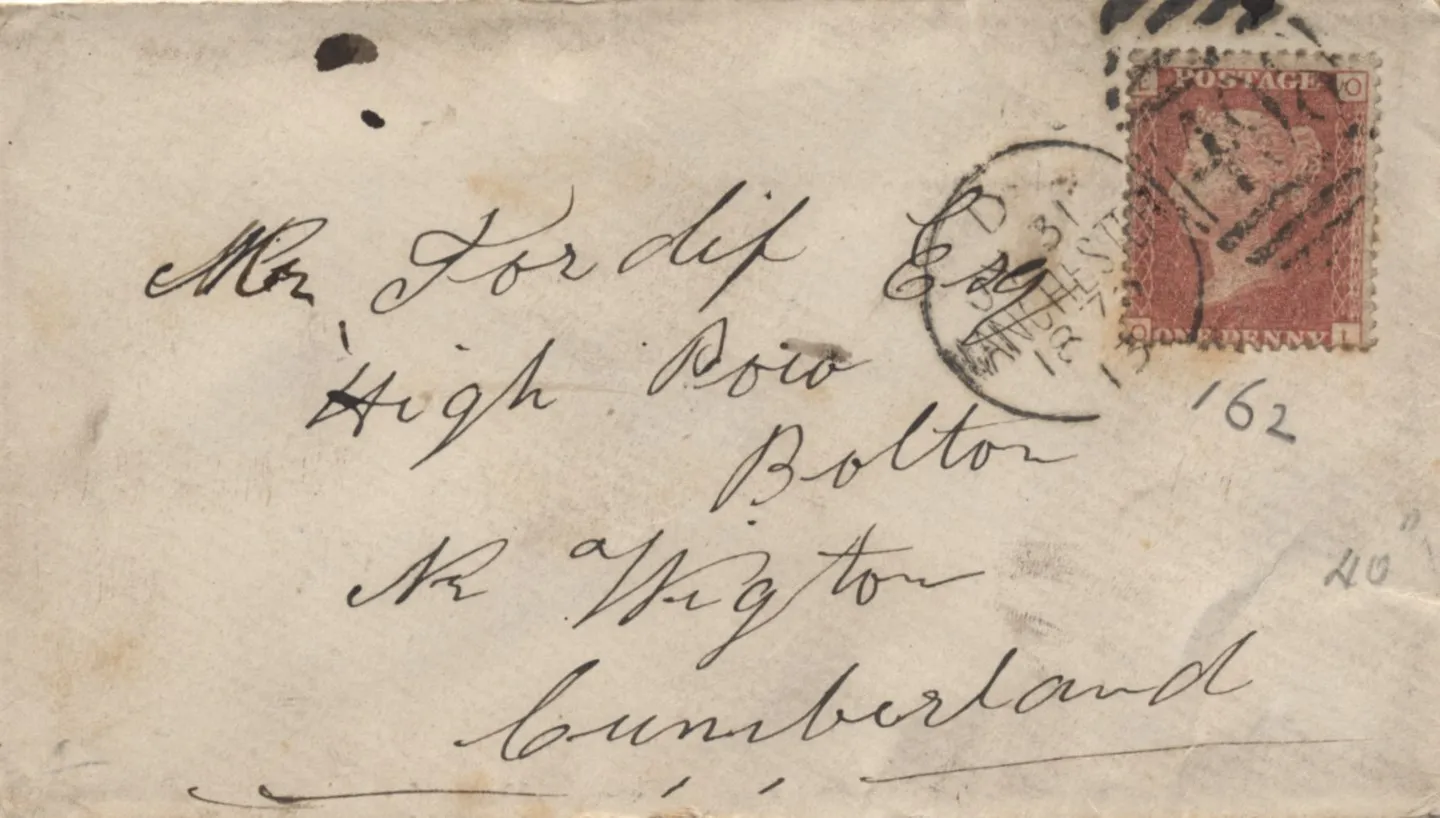 POSTAGE
ONE PENNY
O L
Mr Fordif Esq
High Row
Bolton
Nr Wigton
Cumberland
MANCHESTER
31
162
40